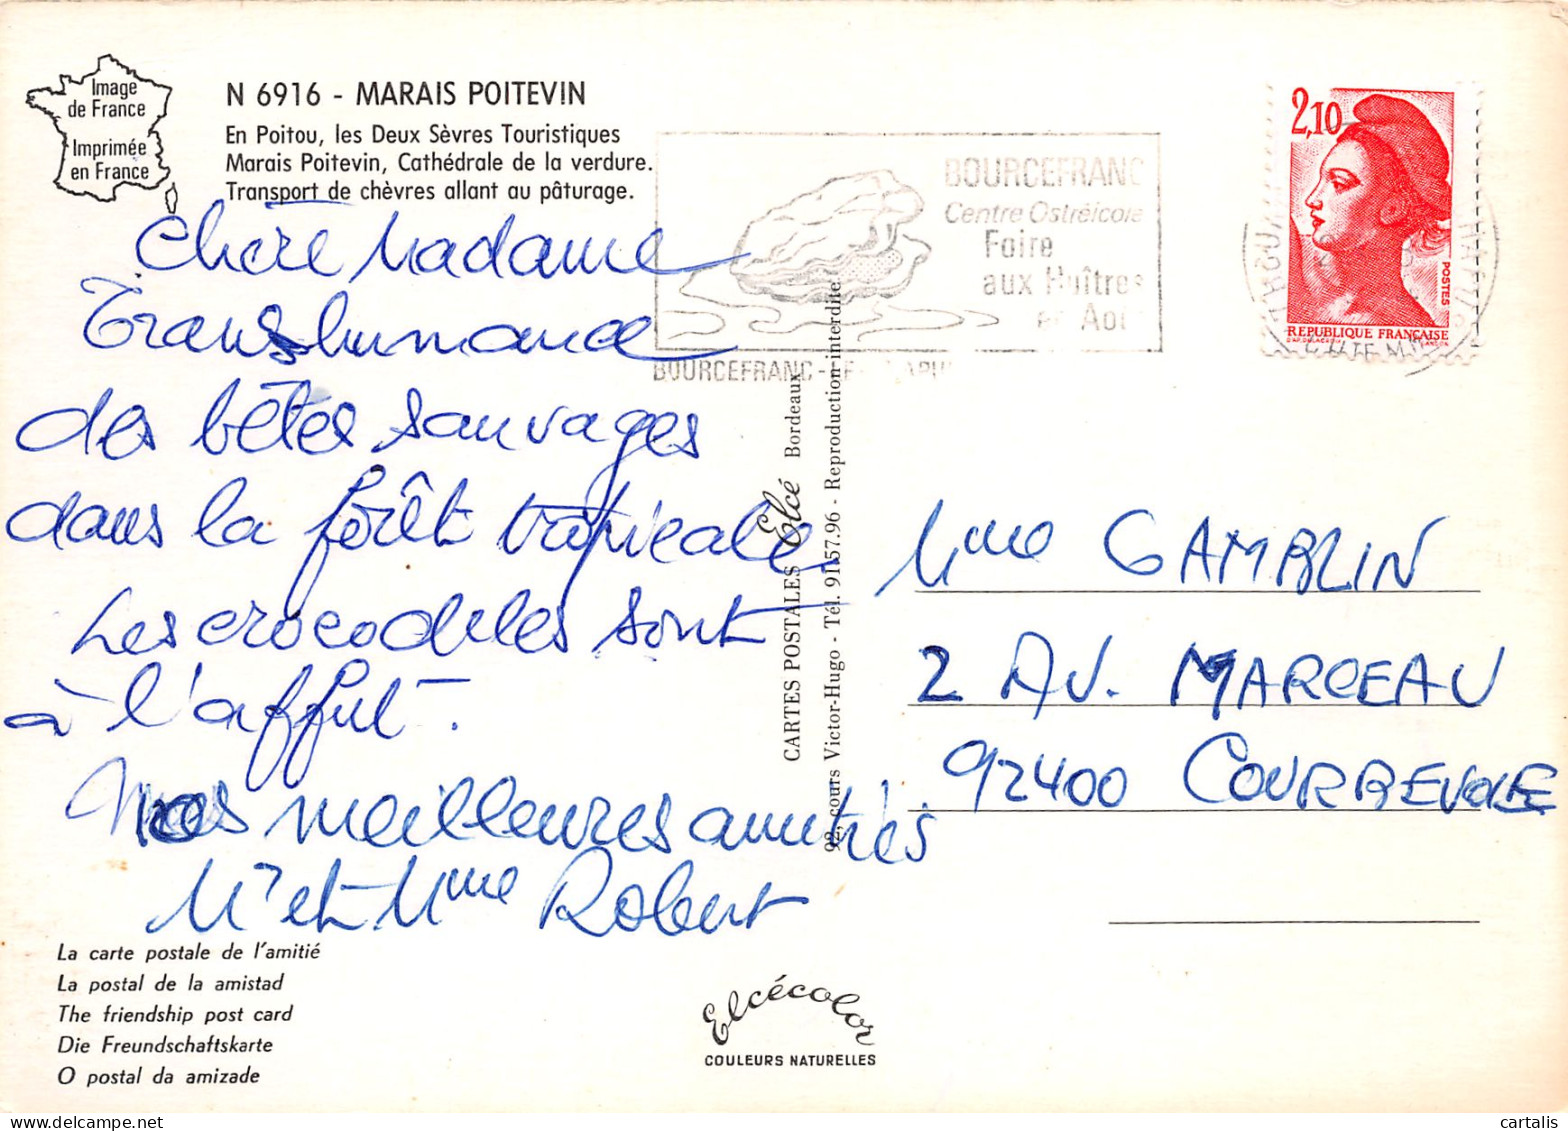 Image
de France
Imprimée
en France
N 6916 - MARAIS POITEVIN
En Poitou, les Deux Sèvres Touristiques
Marais Poitevin, Cathédrale de la verdure.
Transport de chèvres allant au pâturage.
Chère Madame
Transhumance
des bêtes sauvages
dans la forêt tropicale
Les crocodiles sont
à l'affut.
Nos meilleures amitiés
Mr et Mme Robert
La carte postale de l'amitié
La postal de la amistad
The friendship post card
Die Freundschaftskarte
O postal da amizade
BOURCEFRANC
Centre Ostréicole
Foire
aux Huîtres
en Août
BOURCEFRANC-LE-CHAPUS
CARTES POSTALES Elcé Bordeaux
92, cours Victor-Hugo - Tél. 91.57.96 - Reproduction interdite
2,10
POSTES
REPUBLIQUE FRANÇAISE
Mme GAMBLIN
2 AV. MARCEAU
92400 COURBEVOIE
Elcécolor
COULEURS NATURELLES
cartalis